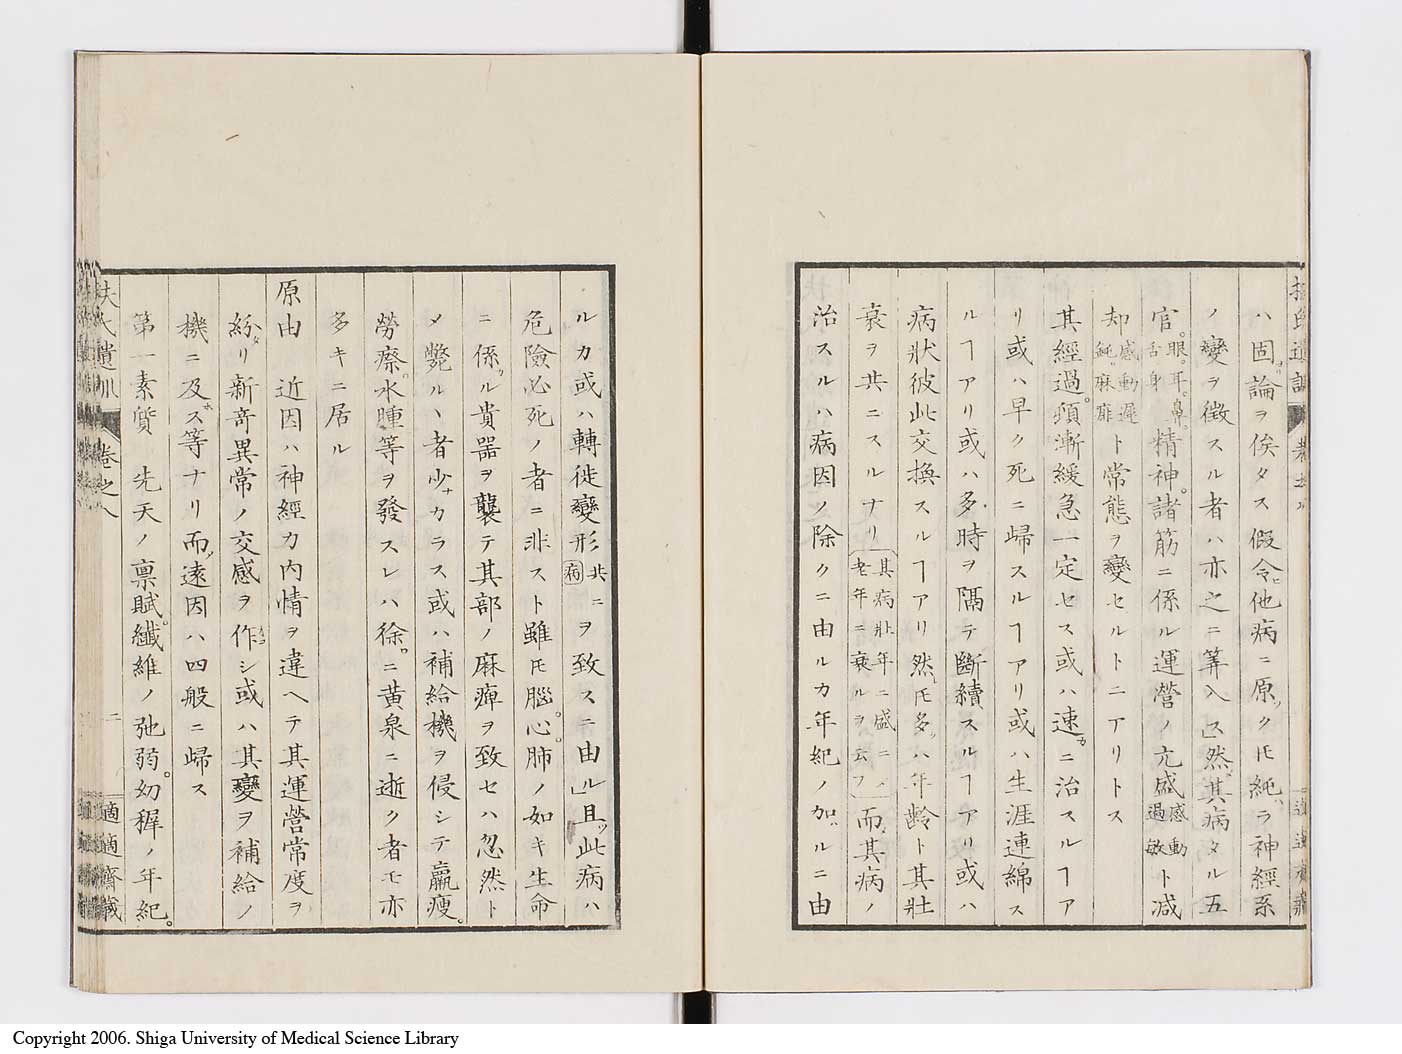 ハ固ヨリ論ヲ俟タス假令ヒ他病ニ原クモ純ラ神經系
ノ變ヲ徴スル者ハ亦之ニ筭入ス」然其病タル五
官眼。耳。鼻。舌。身精神。諸筋ニ係ル運營ノ亢盛感動過敏ト減
却感動遲鈍。麻痺ト常態ヲ變セルトニアリトス
其經過。頻漸緩急一定セス或ハ速カニ治スルヿア
リ或ハ早ク死ニ歸スルヿアリ或ハ生涯連綿ス
ルヿアリ或ハ多時ヲ隔テ斷續スルヿアリ或ハ
病狀彼此交換スルヿアリ然レ𪜈多クハ年齡ト其壯
衰ヲ共ニスルナリ(其病壯年ニ盛ニ老年ニ衰ルヲ云フ)而其病ノ
治スルハ病因ノ除クニ由ルカ年紀ノ加ハルニ由
ルカ或ハ轉徙變形共ニ病ヲ致スニ由ル」且ツ此病ハ
危險必死ノ者ニ非スト雖𪜈腦。心。肺ノ如キ生命
ニ係ル貴器ヲ襲テ其部ノ麻痺ヲ致セハ忽然ト
メ斃ル丶者少ナカラス或ハ補給機ヲ侵シテ羸瘦。
勞瘵。水腫等ヲ發スレハ徐々ニ黄泉ニ逝ク者モ亦
多キニ居ル
原由　近因ハ神經力内情ヲ違ヘテ其運營常度ヲ
紛タリ新奇異常ノ交感ヲ作シ或ハ其變ヲ補給ノ
機ニ及ホス等ナリ而遠因ハ四般ニ歸ス
第一素質　先天ノ禀賦。纎維ノ弛弱。幼穉ノ年紀。
扶氏遺訓　卷之八　二　適適齋藏